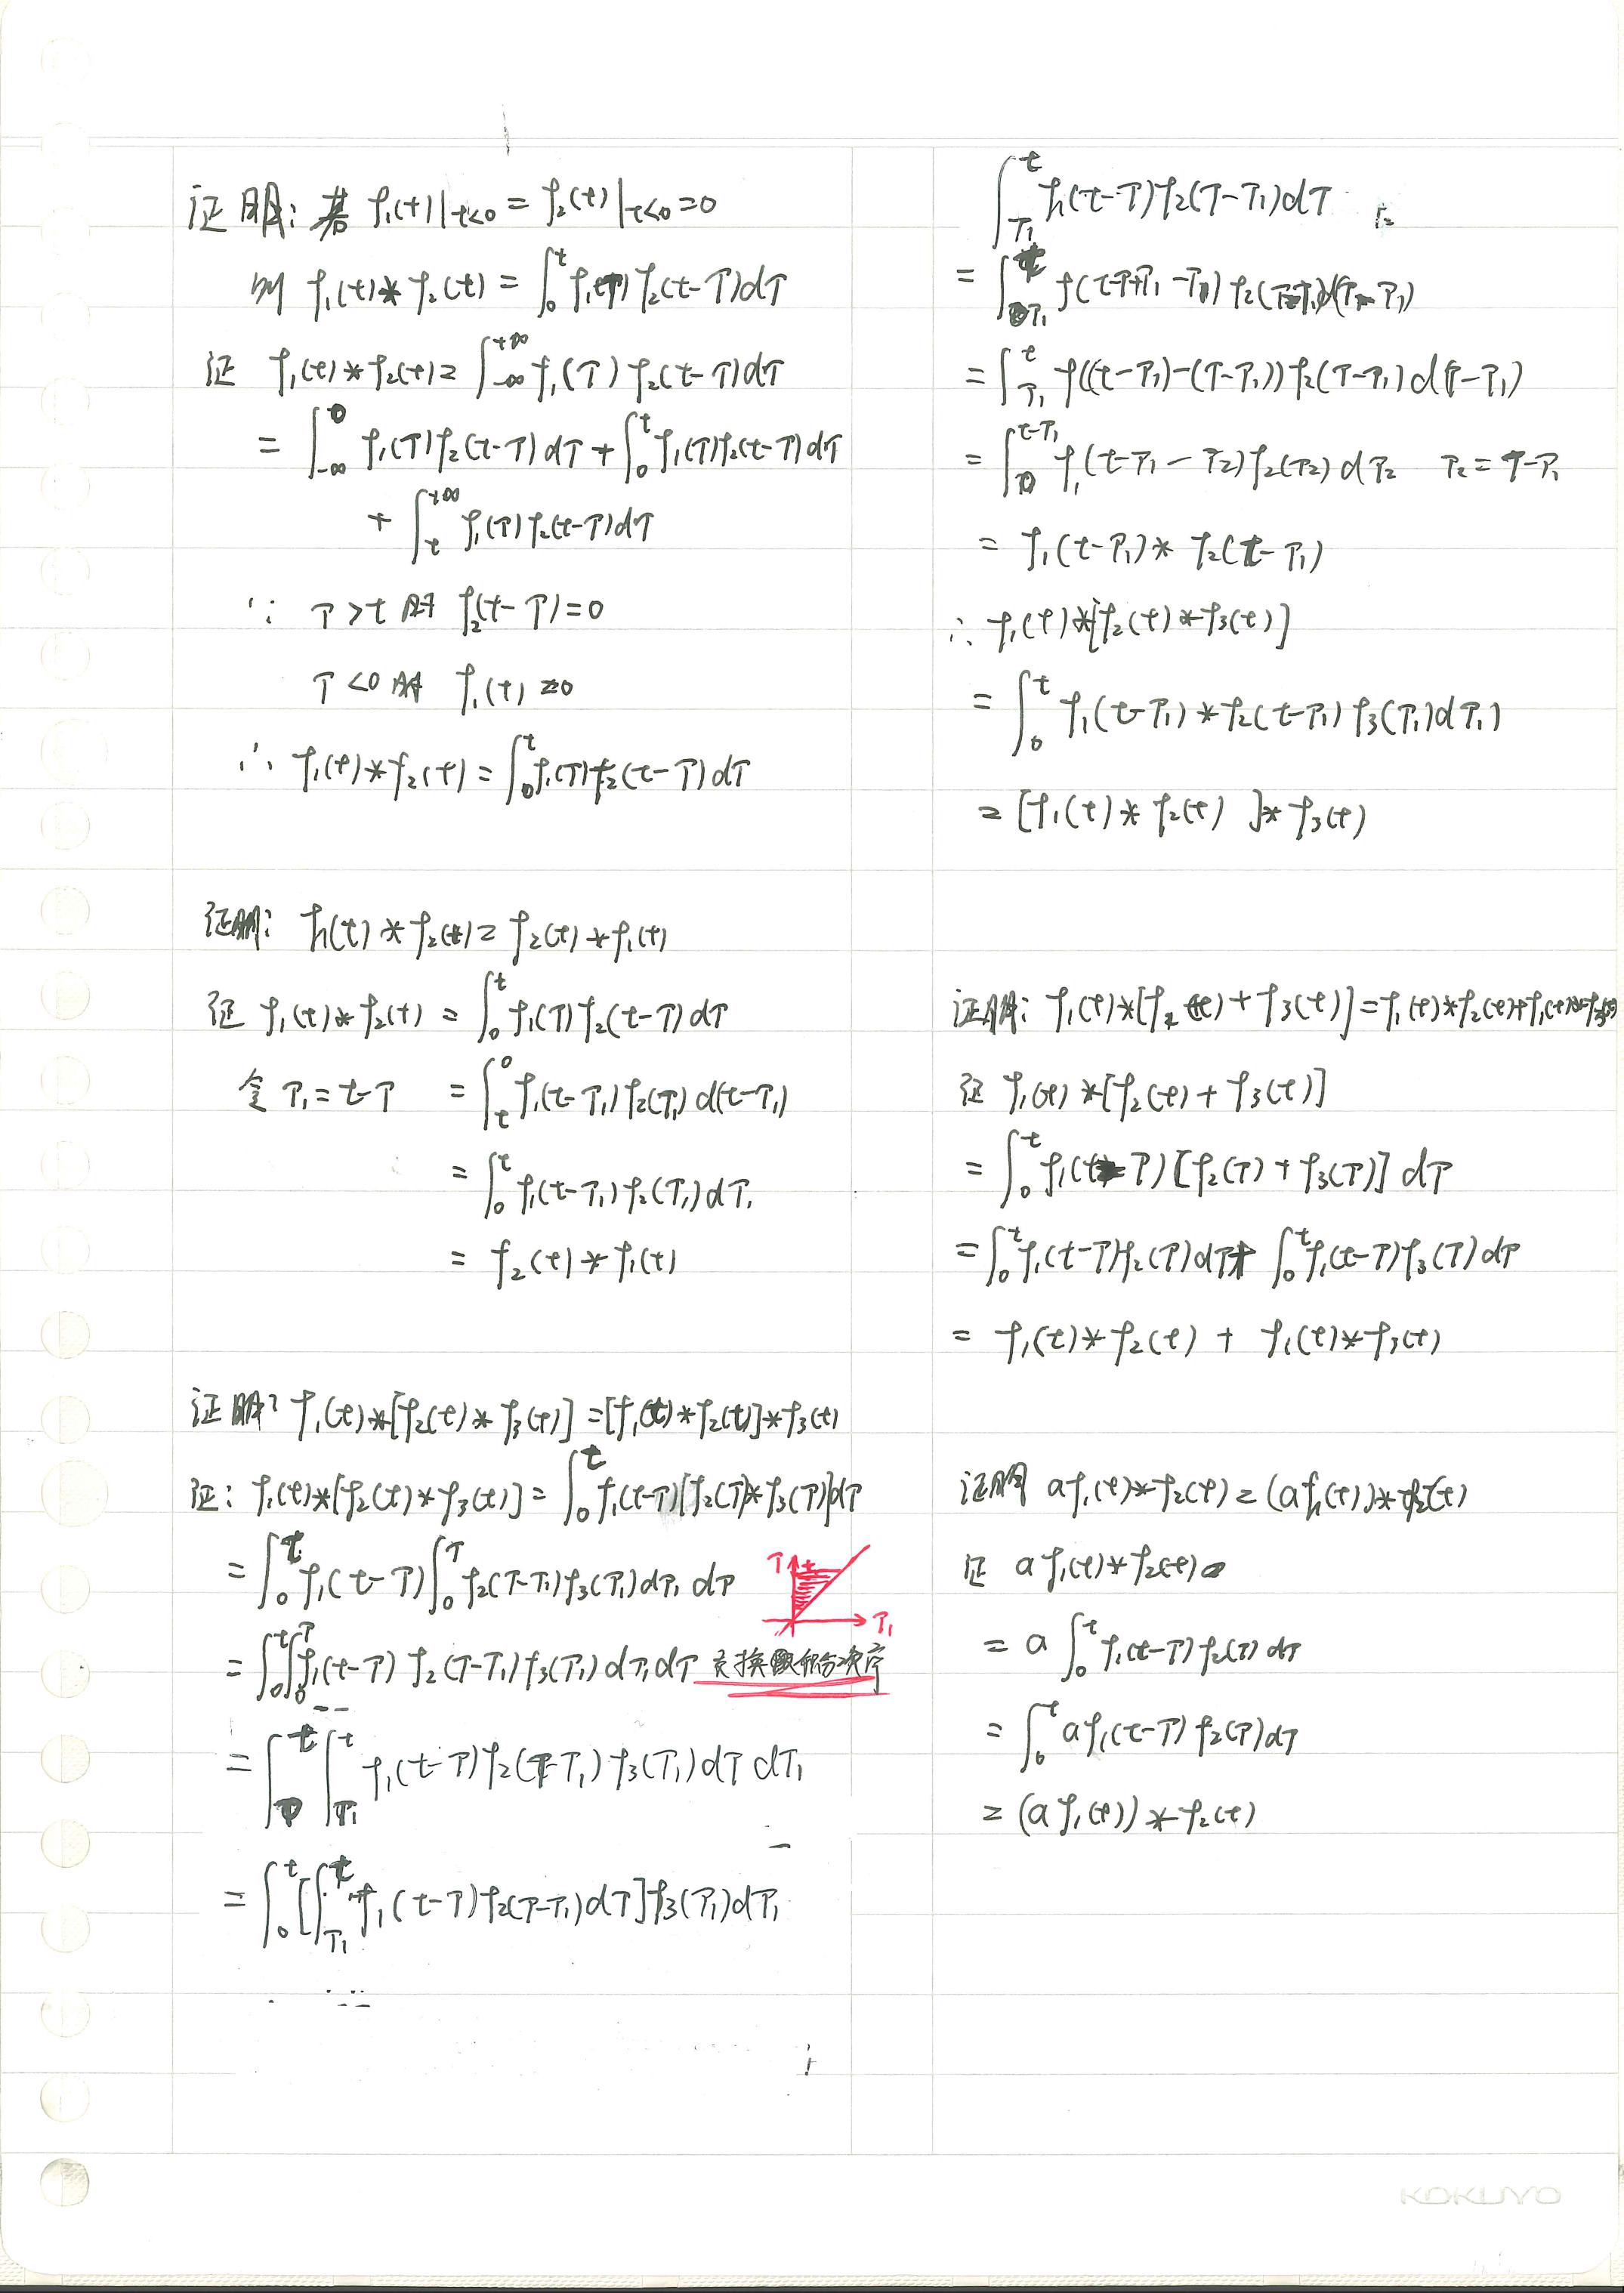 证明：若 f₁(t)|t<0 = f₂(t)|t<0 = 0
则 f₁(t)*f₂(t) = ∫₀ᵗ f₁(τ) f₂(t-τ)dτ
证 f₁(t)*f₂(t) = ∫_{-∞}^{+∞} f₁(τ) f₂(t-τ)dτ
= ∫_{-∞}^{0} f₁(τ)f₂(t-τ)dτ + ∫₀ᵗ f₁(τ)f₂(t-τ)dτ
+ ∫_{t}^{+∞} f₁(τ)f₂(t-τ)dτ
∵ τ>t 时 f₂(t-τ)=0
τ<0 时 f₁(t)=0
∴ f₁(t)*f₂(t) = ∫₀ᵗ f₁(τ)f₂(t-τ)dτ
证明：f₁(t)*f₂(t) = f₂(t)*f₁(t)
证 f₁(t)*f₂(t) = ∫₀ᵗ f₁(τ)f₂(t-τ)dτ
令 τ₁=t-τ = ∫_{t}^{0} f₁(t-τ₁)f₂(τ₁)d(t-τ₁)
= ∫₀ᵗ f₁(t-τ₁)f₂(τ₁)dτ₁
= f₂(t)*f₁(t)
证明：f₁(t)*[f₂(t)*f₃(t)] = [f₁(t)*f₂(t)]*f₃(t)
证：f₁(t)*[f₂(t)*f₃(t)] = ∫₀ᵗ f₁(t-τ)[f₂(τ)*f₃(τ)]dτ
= ∫₀ᵗ f₁(t-τ)∫₀^τ f₂(τ-τ₁)f₃(τ₁)dτ₁ dτ
τ t
τ₁
= ∫₀ᵗ∫₀^τ f₁(t-τ) f₂(τ-τ₁)f₃(τ₁)dτ₁dτ 交换积分次序
= ∫₀ᵗ∫_{τ₁}^{t} f₁(t-τ)f₂(τ-τ₁)f₃(τ₁)dτ dτ₁
= ∫₀ᵗ[∫_{τ₁}^{t} f₁(t-τ)f₂(τ-τ₁)dτ]f₃(τ₁)dτ₁
∫_{τ₁}^{t} f₁(t-τ)f₂(τ-τ₁)dτ
= ∫_{τ₁}^{t} f(t-τ+τ₁-τ₁) f₂(τ-τ₁)d(τ-τ₁)
= ∫_{τ₁}^{t} f((t-τ₁)-(τ-τ₁))f₂(τ-τ₁)d(τ-τ₁)
= ∫₀^{t-τ₁} f₁(t-τ₁-τ₂)f₂(τ₂)dτ₂ τ₂=τ-τ₁
= f₁(t-τ₁)*f₂(t-τ₁)
∴ f₁(t)*[f₂(t)*f₃(t)]
= ∫₀ᵗ f₁(t-τ₁)*f₂(t-τ₁)f₃(τ₁)dτ₁
= [f₁(t)*f₂(t)]*f₃(t)
证明：f₁(t)*[f₂(t)+f₃(t)] = f₁(t)*f₂(t)+f₁(t)*f₃(t)
证 f₁(t)*[f₂(t)+f₃(t)]
= ∫₀ᵗ f₁(t-τ)[f₂(τ)+f₃(τ)]dτ
= ∫₀ᵗ f₁(t-τ)f₂(τ)dτ + ∫₀ᵗ f₁(t-τ)f₃(τ)dτ
= f₁(t)*f₂(t) + f₁(t)*f₃(t)
证明 af₁(t)*f₂(t) = (af₁(t))*f₂(t)
证 af₁(t)*f₂(t)
= a∫₀ᵗ f₁(t-τ)f₂(τ)dτ
= ∫₀ᵗ af₁(t-τ)f₂(τ)dτ
= (af₁(t))*f₂(t)
KOKUYO